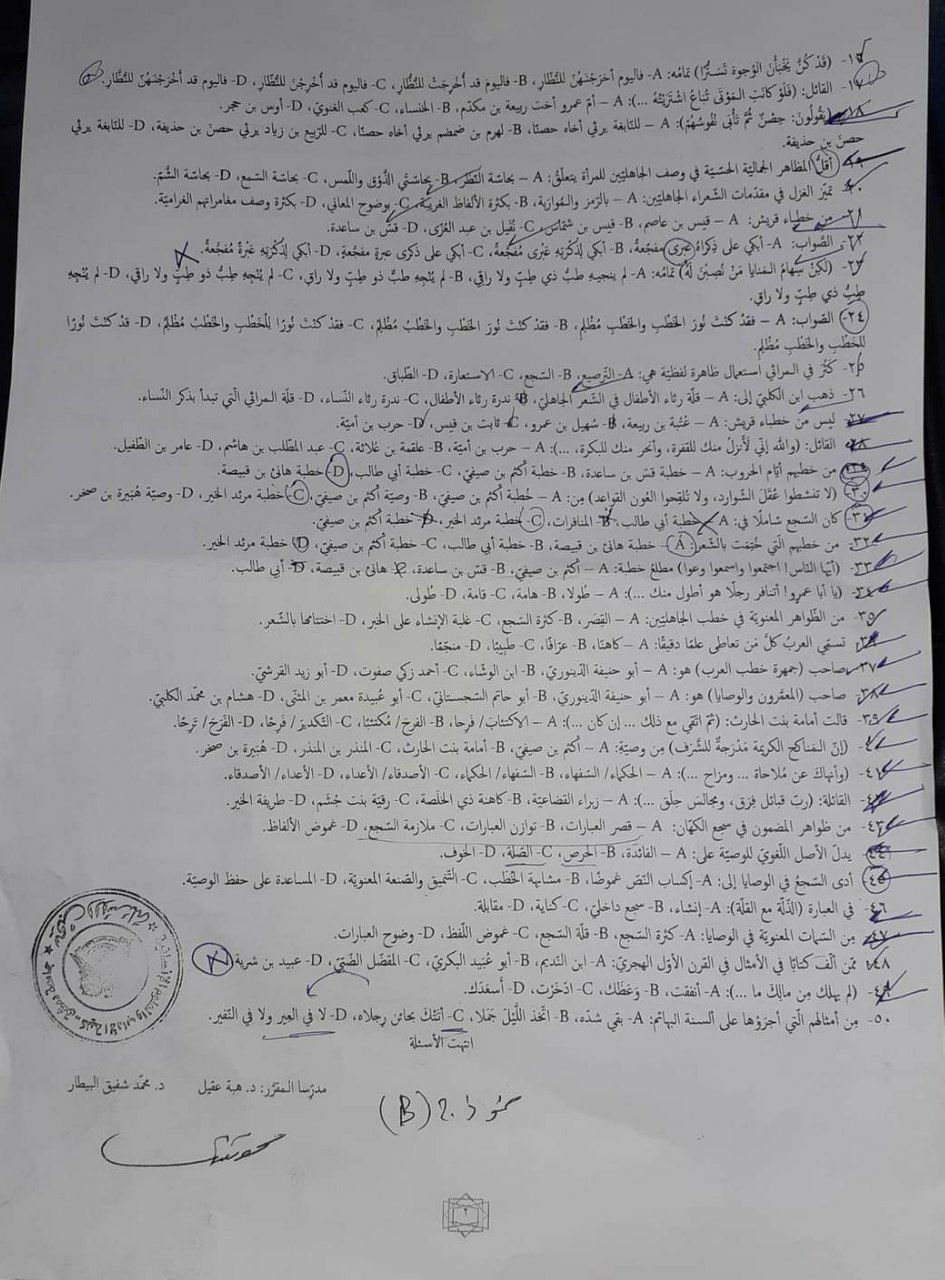 ١٦- (قَدْ كُنَّ يَخْبَأْنَ الوُجوهَ تَسَتُّرًا) تمامُه: A- فاليومَ أخرَجنَهنَّ للنُّظّارِ، B- فاليومَ قد أُخرِجَتْ للنُّظّارِ، C- فاليوم قد أُخرِجْنَ للنُّظّارِ، D- فاليوم قد أخْرَجْنَهُنَّ للنُّظّارِ.
١٧- القائل: (فَلَوْ كانَتِ المَوْتَى تُباعُ اشْتَرَيْتُهُ ...): A – أمّ عمرو أخت ربيعة بن مكدّم، B- الخنساء، C- كعب الغنويّ، D- أوس بن حجر.
١٨- (يقُولُونَ: حِصْنٌ ثُمَّ تَأْبَى نُفُوسُهُمْ): A – للنّابغة يرثي أخاه حصنًا، B- لهرم بن ضمضم يرثي أخاه حصنًا، C- للرّبيع بن زياد يرثي حصنَ بن حذيفة، D- للنّابغة يرثي
حصنَ بن حذيفة.
١٩- أقلُّ المظاهر الجماليّة الحسّيّة في وصف الجاهليّين للمرأة يتعلّقُ: A – بحاسّة النّظر، B- بحاسّتَي الذّوق واللّمس، C- بحاسّة السّمع، D- بحاسّة الشّمّ.
٢٠- تميّز الغزل في مقدّمات الشّعراء الجاهليّين: A – بالرّمز والمُوارَبة، B- بكثرة الألفاظ الغريبة، C- بوضوح المعاني، D- بكثرة وصف مغامراتهم الغراميّة.
٢١- من خطباء قريش: A – قيس بن عاصم، B- قيس بن شمّاس، C- نُفَيل بن عبد العُزّى، D- قسّ بن ساعدة.
٢٢- الصّواب: A – أبكي على ذِكراهُ عَبرى مفجّعةً، B- أبكي لِذُكْرَتِهِ عَبْرَى مُفَجَّعةً، C- أبكي على ذكراه عبرةً مفجَّعةٍ، D- أبكي لِذُكرتِهِ عَبْرةً مُفجَّعةً.
٢٣- (لَكِنْ سِهامُ المَنايا مَنْ نَصَبْنَ لَهُ) تمامُه: A- لم ينجيهِ طبُّ ذي طِبٍّ ولا راقِي، B- لم يُنْجِهِ طبٌّ ذي طبٍّ ولا راقي، C- لم يُنْجِهِ طِبٌّ ذو طِبٍّ ولا راقي، D- لم يُنْجِهِ
طِبُّ ذي طِبٍّ ولا راقِ.
٢٤- الصّواب: A – فقدْ كنْتَ نُورَ الخَطْبِ والخَطبِ مُظْلِم، B- فقدْ كنْتَ نُورَ الخَطْبِ والخَطْبُ مُظْلِمُ، C- فقدْ كنْتَ نُورًا لِلْخَطْبِ والخَطْبُ مُظْلِمُ، D- قدْ كنْتَ نُورًا
للخَطْبِ والخَطْبِ مُظْلِمِ.
٢٥- كَثُرَ في المراثي استعمال ظاهرة لفظيّة هي: A- التّرصيع، B- السّجع، C- الاستعارة، D- الطّباق.
٢٦- ذهب ابن الكلبيّ إلى: A – قلّة رثاء الأطفال في الشّعر الجاهليّ، B- ندرة رثاء الأطفال، C- ندرة رثاء النّساء، D- قلّة المراثي الّتي تبدأ بذكر النّساء.
٢٧- ليس من خطباء قريش: A – عُتبة بن ربيعة، B- سُهيل بن عمرو، C- ثابت بن قيس، D- حرب بن أميّة.
٢٨- القائل: (والله إنّي لَأَنزِلُ منك للقفرة، وأنحر منك للبكرة، ...): A – حرب بن أميّة، B- علقمة بن عُلاثة، C- عبد المطّلب بن هاشم، D- عامر بن الطّفيل.
٢٩- من خطبهم أيّام الحروب: A – خطبة قسّ بن ساعدة، B- خطبة أكثم بن صيفيّ، C- خطبة أبي طالب، D- خطبة هانئ بن قبيصة.
٣٠- (لا تنشطوا عُقُلَ الشّوارد، ولا تُلقِحوا العُونَ القَواعد) مِن: A – خُطبة أكثم بن صيفيّ، B- وصيّة أكثم بن صيفيّ، C- خطبة مرثد الخير، D- وصيّة هُبَيرة بن صخر.
٣١- كان السّجع شاملًا في: A – خطبة أبي طالب. B- المنافرات، C- خطبة مرثد الخير، D- خطبة أكثم بن صيفيّ.
٣٢- من خطبهم الّتي خُتِمَت بالشّعر: A- خطبة هانئ بن قبيصة، B- خطبة أبي طالب، C- خطبة أكثم بن صيفيّ، D- خطبة مرثد الخير.
٣٣- (أيّها النّاس! اجتمعوا واسمعوا وعوا) مطلعُ خطبة: A – أكثم بن صيفيّ، B- قسّ بن ساعدة، C- هانئ بن قبيصة، D- أبي طالب.
٣٤- (يا أبا عمرِو! أتنافر رجلًا هو أطول منك ...): A – طُولا، B- هامة، C- قامة، D- طُولى.
٣٥- من الظّواهر المعنويّة في خطب الجاهليّين: A – القِصَر، B- كثرة السّجع، C- غلبة الإنشاء على الخبر، D- اختتامها بالشّعر.
٣٦- تسمّي العربُ كلَّ مَن تعاطى علمًا دقيقًا: A – كاهنًا، B- عرّافًا، C- طبيبًا، D- منجّمًا.
٣٧- صاحب (جمهرة خطب العرب) هو: A – أبو حنيفة الدّينوريّ، B- ابن الوشّاء، C- أحمد زكي صفوت، D- أبو زيد القرشيّ.
٣٨- صاحب (المعمّرون والوصايا) هو: A – أبو حنيفة الدّينوريّ، B- أبو حاتم السّجستانيّ، C- أبو عُبيدة معمر بن المثنّى، D- هشام بن محمّد الكلبيّ.
٣٩- قالت أمامة بنت الحارث: (ثمّ اتّقي مع ذلك ... إن كان ...): A – الاكتئابَ/ فَرِحا، B- الفرحَ/ مُكتئبًا، C- التّكديرَ/ فَرِحًا، D- الفَرَحَ/ تَرِحًا.
٤٠- (إنّ المَناكحَ الكريمة مَدْرَجةٌ للشَّرَف) مِن وصيّةِ: A – أكثم بن صيفيّ، B- أمامة بنت الحارث، C- المنذر بن المنذر، D- هُبَيرة بن صخر.
٤١- (وأنهاكَ عن مُلاحاة ... ومزاح ...): A – الحكماء/ السّفهاء، B- السّفهاء/ الحكماء، C- الأصدقاء/ الأعداء، D- الأعداء/ الأصدقاء.
٤٢- القائلة: (ربّ قبائل فِرَق، ومجالسَ حِلَق ...): A – زبراء القضاعيّة، B- كاهنة ذي الخَلَصة، C- رقيّة بنت جُشَم، D- طريفة الخير.
٤٣- من ظواهر المضمون في سجع الكهّان: A – قصر العبارات، B- توازن العبارات، C- ملازمة السّجع، D- غموض الألفاظ.
٤٤- يدلّ الأصل اللّغويّ للوصيّة على: A – الفائدة، B- الحرص، C- الصّلة، D- الخوف.
٤٥- أدى السّجعُ في الوصايا إلى: A- إكساب النّصّ غموضًا، B- مشابهة الخُطَب، C- التّنميق والصّنعة المعنويّة، D- المساعدة على حفظ الوصيّة.
٤٦- في العبارة (الذّلّة مع القلّة): A- إنشاء، B- سجع داخليّ، C- كناية، D- مقابلة.
٤٧- مِن السّمات المعنويّة في الوصايا: A- كثرة السّجع، B- قلّة السّجع، C- غموض اللّفظ، D- وضوح العبارات.
٤٨- ممّن ألّف كتابًا في الأمثال في القرن الأوّل الهجريّ: A- ابن النّديم، B- أبو عُبَيد البكريّ، C- المفضّل الضّبّيّ، D- عبيد بن شرية.
٤٩- (لم يهلِك مِن مالِكَ ما ...): A- أنفقت، B- وَعَظَك، C- ادّخَرْت، D- أسعَدَك.
٥٠- مِن أمثالهم الّتي أجرَوْها على ألسنة البهائم: A- بقي شدّه، B- اتّخذ اللّيْلَ جَمَلا، C- أتَتْكَ بحائنٍ رجلاه، D- لا في العير ولا في النّفير.
انتهت الأسئلة
مدرّسا المقرّر: د. هبة عقيل د. محمّد شفيق البيطار
نموذج (B)
٢